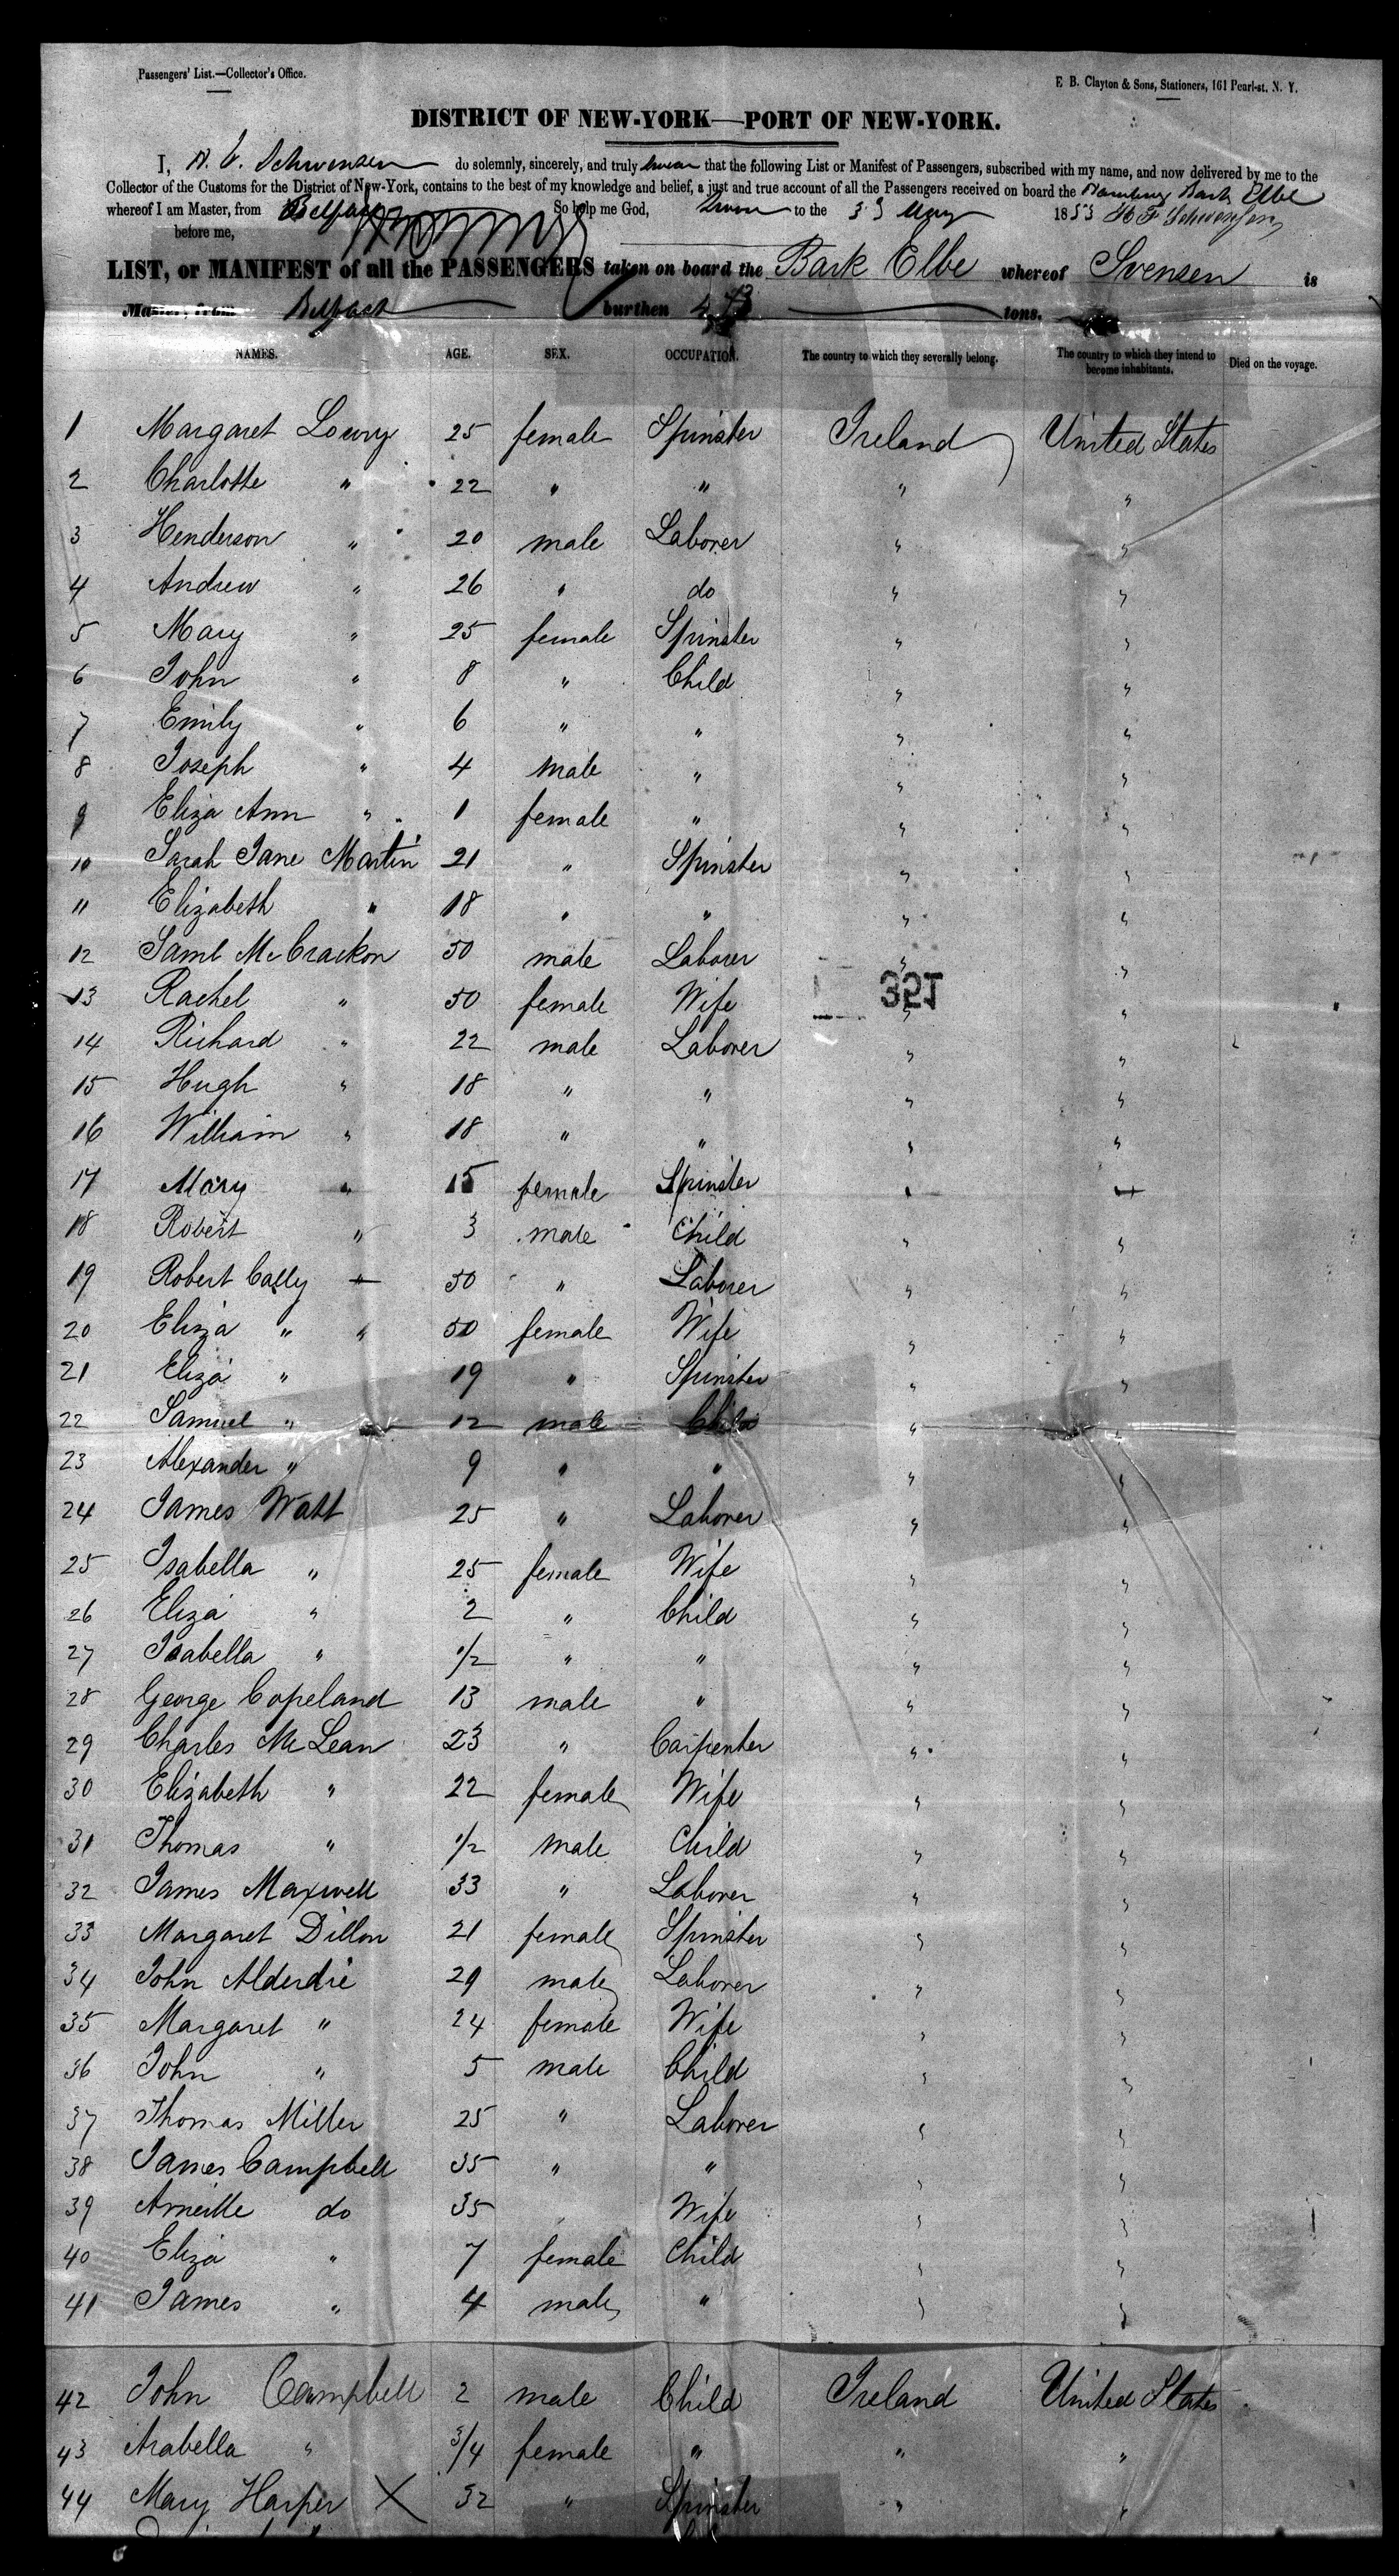 Passengers' List.—Collector's Office.
E. B. Clayton & Sons, Stationers, 161 Pearl-st. N. Y.
DISTRICT OF NEW-YORK—PORT OF NEW-YORK.
I, Schwensen do solemnly, sincerely, and truly swear that the following List or Manifest of Passengers, subscribed with my name, and now delivered by me to the
Collector of the Customs for the District of New-York, contains to the best of my knowledge and belief, a just and true account of all the Passengers received on board the Hamburg Bark Elbe
whereof I am Master, from Belfast So help me God, to the May 1853
before me,
LIST, or MANIFEST of all the PASSENGERS taken on board the Bark Elbe whereof Svensen is
Master, from Belfast burthen tons.
NAMES. AGE. SEX. OCCUPATION. The country to which they severally belong. The country to which they intend to become inhabitants. Died on the voyage.
1 Margaret Lowry 25 female Spinster Ireland United States
2 Charlotte " 22 " " " "
3 Henderson " 20 male Laborer " "
4 Andrew " 26 " do " "
5 Mary " 25 female Spinster " "
6 John " 8 " Child " "
7 Emily " 6 " " " "
8 Joseph " 4 male " " "
9 Eliza Ann " 1 female " " "
10 Sarah Jane Martin 21 " Spinster " "
11 Elizabeth " 18 " " " "
12 Saml McCracken 50 male Laborer " "
13 Rachel " 50 female Wife " "
351
14 Richard " 22 male Laborer " "
15 Hugh " 18 " " " "
16 William " 18 " " " "
17 Mary " 15 female Spinster " "
18 Robert " 3 male Child " "
19 Robert Cally " 50 " Laborer " "
20 Eliza " " 50 female Wife " "
21 Eliza " 19 " Spinster " "
22 Samuel " 12 male Child " "
23 Alexander " 9 " " " "
24 James Watt 25 " Laborer " "
25 Isabella " 25 female Wife " "
26 Eliza " 2 " Child " "
27 Isabella " 1/2 " " " "
28 George Copeland 13 male " " "
29 Charles McLean 23 " Carpenter " "
30 Elizabeth " 22 female Wife " "
31 Thomas " 1/2 male Child " "
32 James Maxwell 33 " Laborer " "
33 Margaret Dillon 21 female Spinster " "
34 John Alderdie 29 male Laborer " "
35 Margaret " 24 female Wife " "
36 John " 5 male Child " "
37 Thomas Miller 25 " Laborer " "
38 James Campbell 35 " " " "
39 do 35 Wife " "
40 Eliza " 7 female Child " "
41 James " 4 male " " "
42 John Campbell 2 male Child Ireland United States
43 Arabella " 3/4 female " " "
44 Mary Harper X 32 " Spinster " "